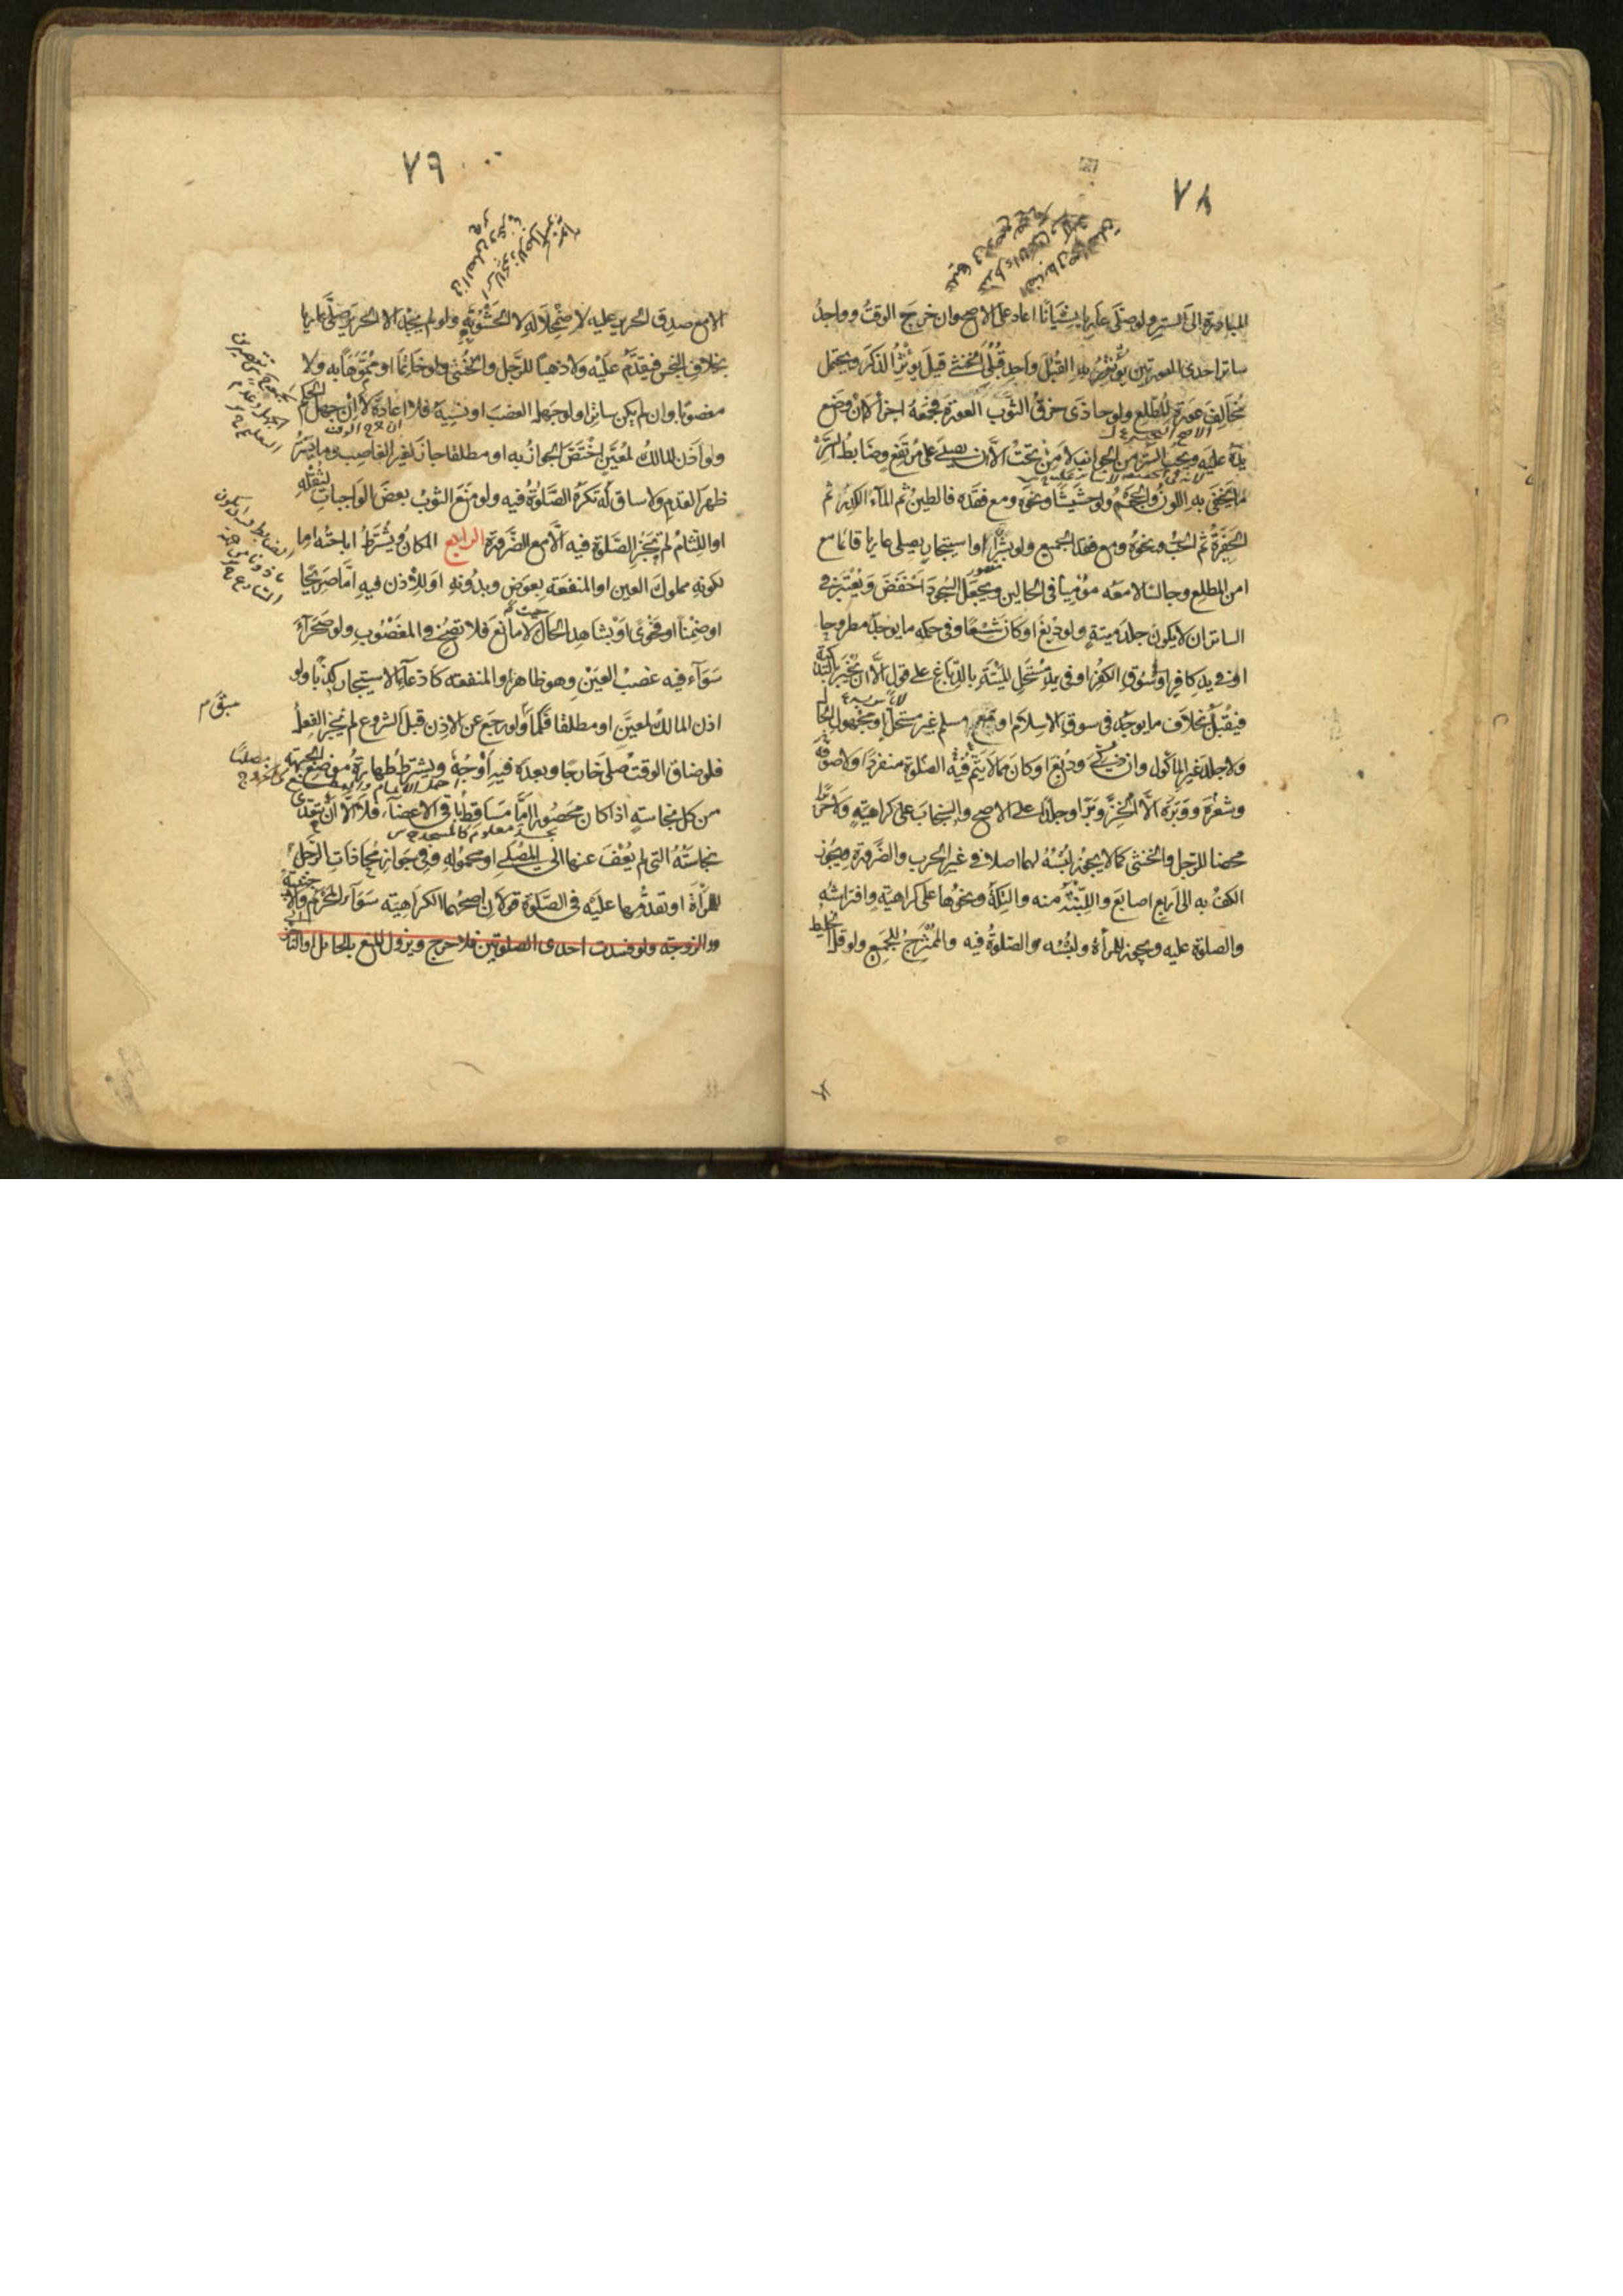 ٧٨
المبادرة الى الستر ولو صلى عاريا نسيانا اعاد على الاصح وان خرج الوقت وواجد
ساتر احدى العورتين يؤثر به القبل واحد قبلي الخنثى قيل يؤثر الذكر ويحتمل
مخالف عورة المطلع ولو حاذى خرق الثوب العورة فجمعه اجزأ لا ان وضع
يده عليه ويجب الستر من الجوانب لا من تحت الا ان يصلي على مرتفع وضابط الستر
ما يخفى به اللون والحجم ولو حشيشا ونحوه ومع فقده فالطين ثم الماء الكدر ثم
الحفرة ثم الحب ونحوه ومع فقد الجميع ولو بشراء او استيجار يصلي عاريا قائما مع
امن المطلع وجالسا لا معه مؤميا في الحالين ويجعل السجود اخفض ويعتبر في
الساتر ان لا يكون جلد ميتة ولو دبغ او كان شسعا وفي حكمه ما يوجد مطروحا
او في يد كافر او سوق الكفر او في يد مستحل الميتة بالدباغ على قول الا ان يخبر بالتذكية
فيقبل بخلاف ما يوجد في سوق الاسلام او مع مسلم غير مستحل او مجهول الحال
ولا جلد غير المأكول وان ذكي ودبغ او كان مما لا يتم فيه الصلوة منفردا ولا صوفه
وشعره ووبره الا الخز وبرا وجلدا على الاصح والسنجاب على كراهية ولا حريرا
محضا للرجل والخنثى كما لا يجوز لبسه لهما اصلا في غير الحرب والضرورة ويجوز
الكف به الى اربع اصابع واللبنة منه والتكة ونحوها على كراهية وافتراشه
والصلوة عليه ويجوز للمرأة ولبسه والصلوة فيه والممتزج للجميع ولو قل الخليط
٧٩
الا مع صدق الحرير عليه لاضمحلاله لا الحشو به ولو لم يجد الا الحرير صلى عاريا
بخلاف النجس فيقدم عليه ولا ذهبا للرجل والخنثى ولو خاتما او مموها به ولا
مغصوبا وان لم يكن ساترا ولو جهل الغصب او نسيه فلا اعادة لا ان جهل الحكم
ولو اذن المالك لمعين اختص الجواز به او مطلقا جاز لغير الغاصب وما يستر
ظهر القدم ولا ساق له تكره الصلوة فيه ولو منع الثوب بعض الواجبات لثقله
او اللثام لم تجز الصلوة فيه الا مع الضرورة الرابع المكان ويشترط اباحته اما
لكونه مملوك العين او المنفعة بعوض وبدونه او للاذن فيه اما صريحا
او ضمنا او فحوى او بشاهد الحال حيث لا مانع فلا تصح في المغصوب ولو صحراء
سواء فيه غصب العين وهو ظاهر والمنفعة كادعاء الاستيجار كذبا ولو
اذن المالك لمعين او مطلقا فكما مر ولو رجع عن الاذن قبل الشروع لم يجز الفعل
فلو ضاق الوقت صلى خارجا وبعده فيه اوجه ويشترط طهارة موضع الجبهة
من كل نجاسة اذا كان محصورا اما مساقط باقي الاعضاء فلا الا ان تتعدى
نجاسته التي لم يعف عنها الى المصلي او محموله وفي جواز محاذات الرجل
للمرأة او تقدمها عليه في الصلوة قولان اصحهما الكراهية سواء المحرم والاجنبية
والزوجة ولو فسدت احدى الصلوتين فلا حرج ويزول المنع بالحائل او التأخر